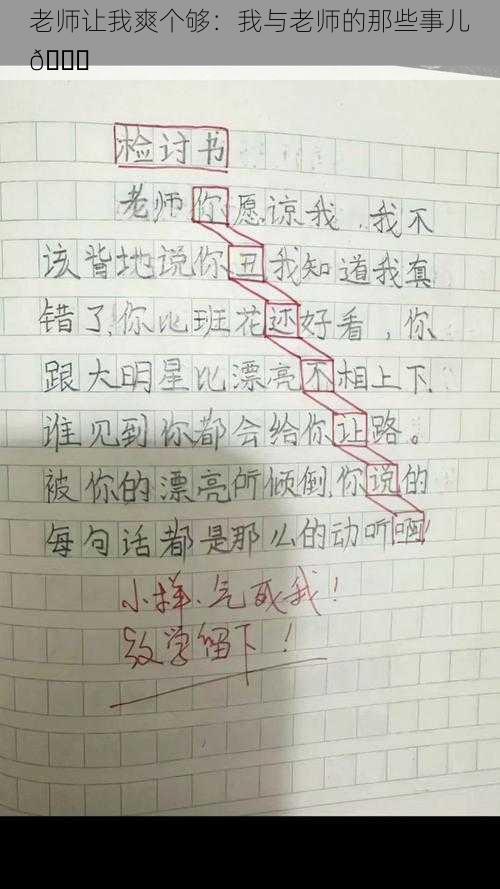 老师让我爽个够：我与老师的那些事儿
ð
检讨书
老师你愿谅我，我不
该背地说你丑我知道我真
错了,你比班花还好看，你
跟大明星比漂亮不相上下.
谁见到你都会给你让路。
被你的漂亮所倾倒.你说的
每句话都是那么的动听啊!
小样.气死我！
放学留下！